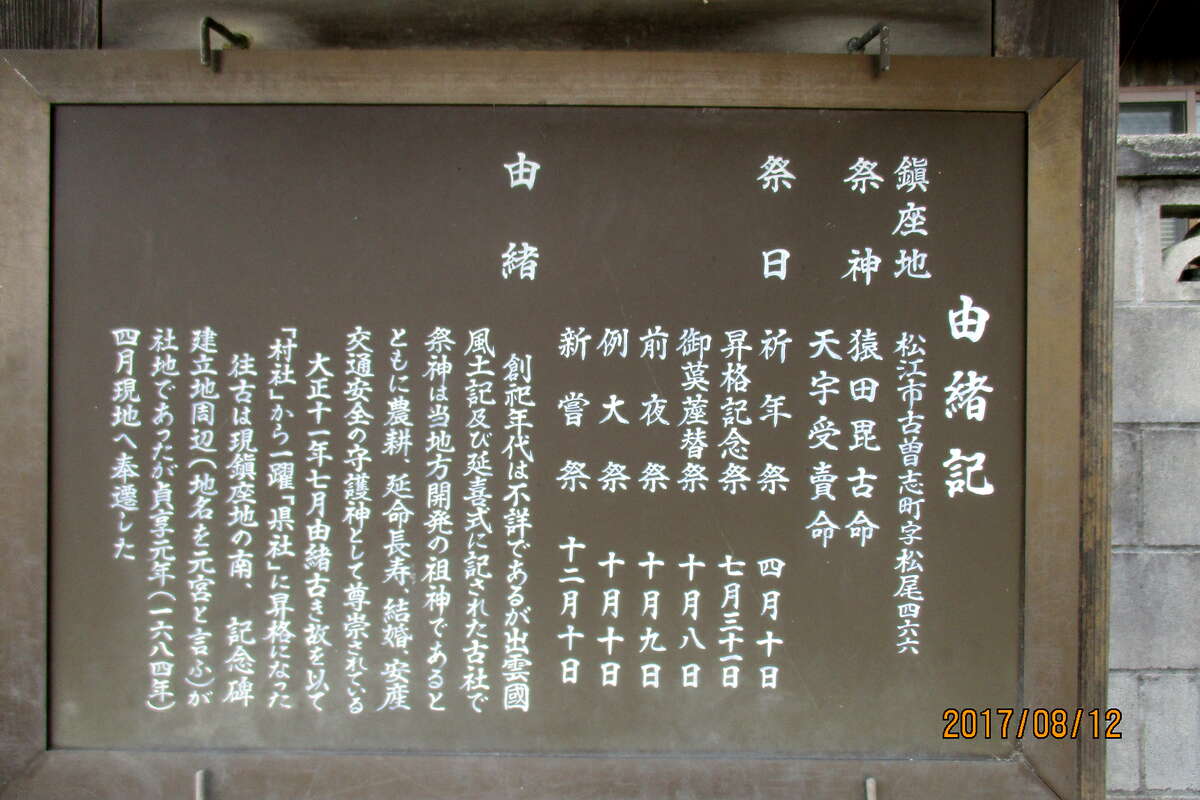 由緒記
鎮座地 松江市古曽志町字松尾四六六
祭神 猿田毘古命
天宇受賣命
祭日 祈年祭 四月十日
昇格記念祭 七月三十一日
御茣蓙替祭 十月八日
前夜祭 十月九日
例大祭 十月十日
新嘗祭 十二月十日
由緒 創祀年代は不詳であるが出雲國
風土記及び延喜式に記された古社で
祭神は当地方開発の祖神であると
ともに農耕、延命長寿、結婚、安産
交通安全の守護神として尊崇されている
大正十一年七月由緒古き故を以て
「村社」から一躍「県社」に昇格になった
往古は現鎮座地の南、記念碑
建立地周辺(地名を元宮と言ふ)が
社地であったが貞享元年(一六八四年)
四月現地へ奉遷した
2017/08/12